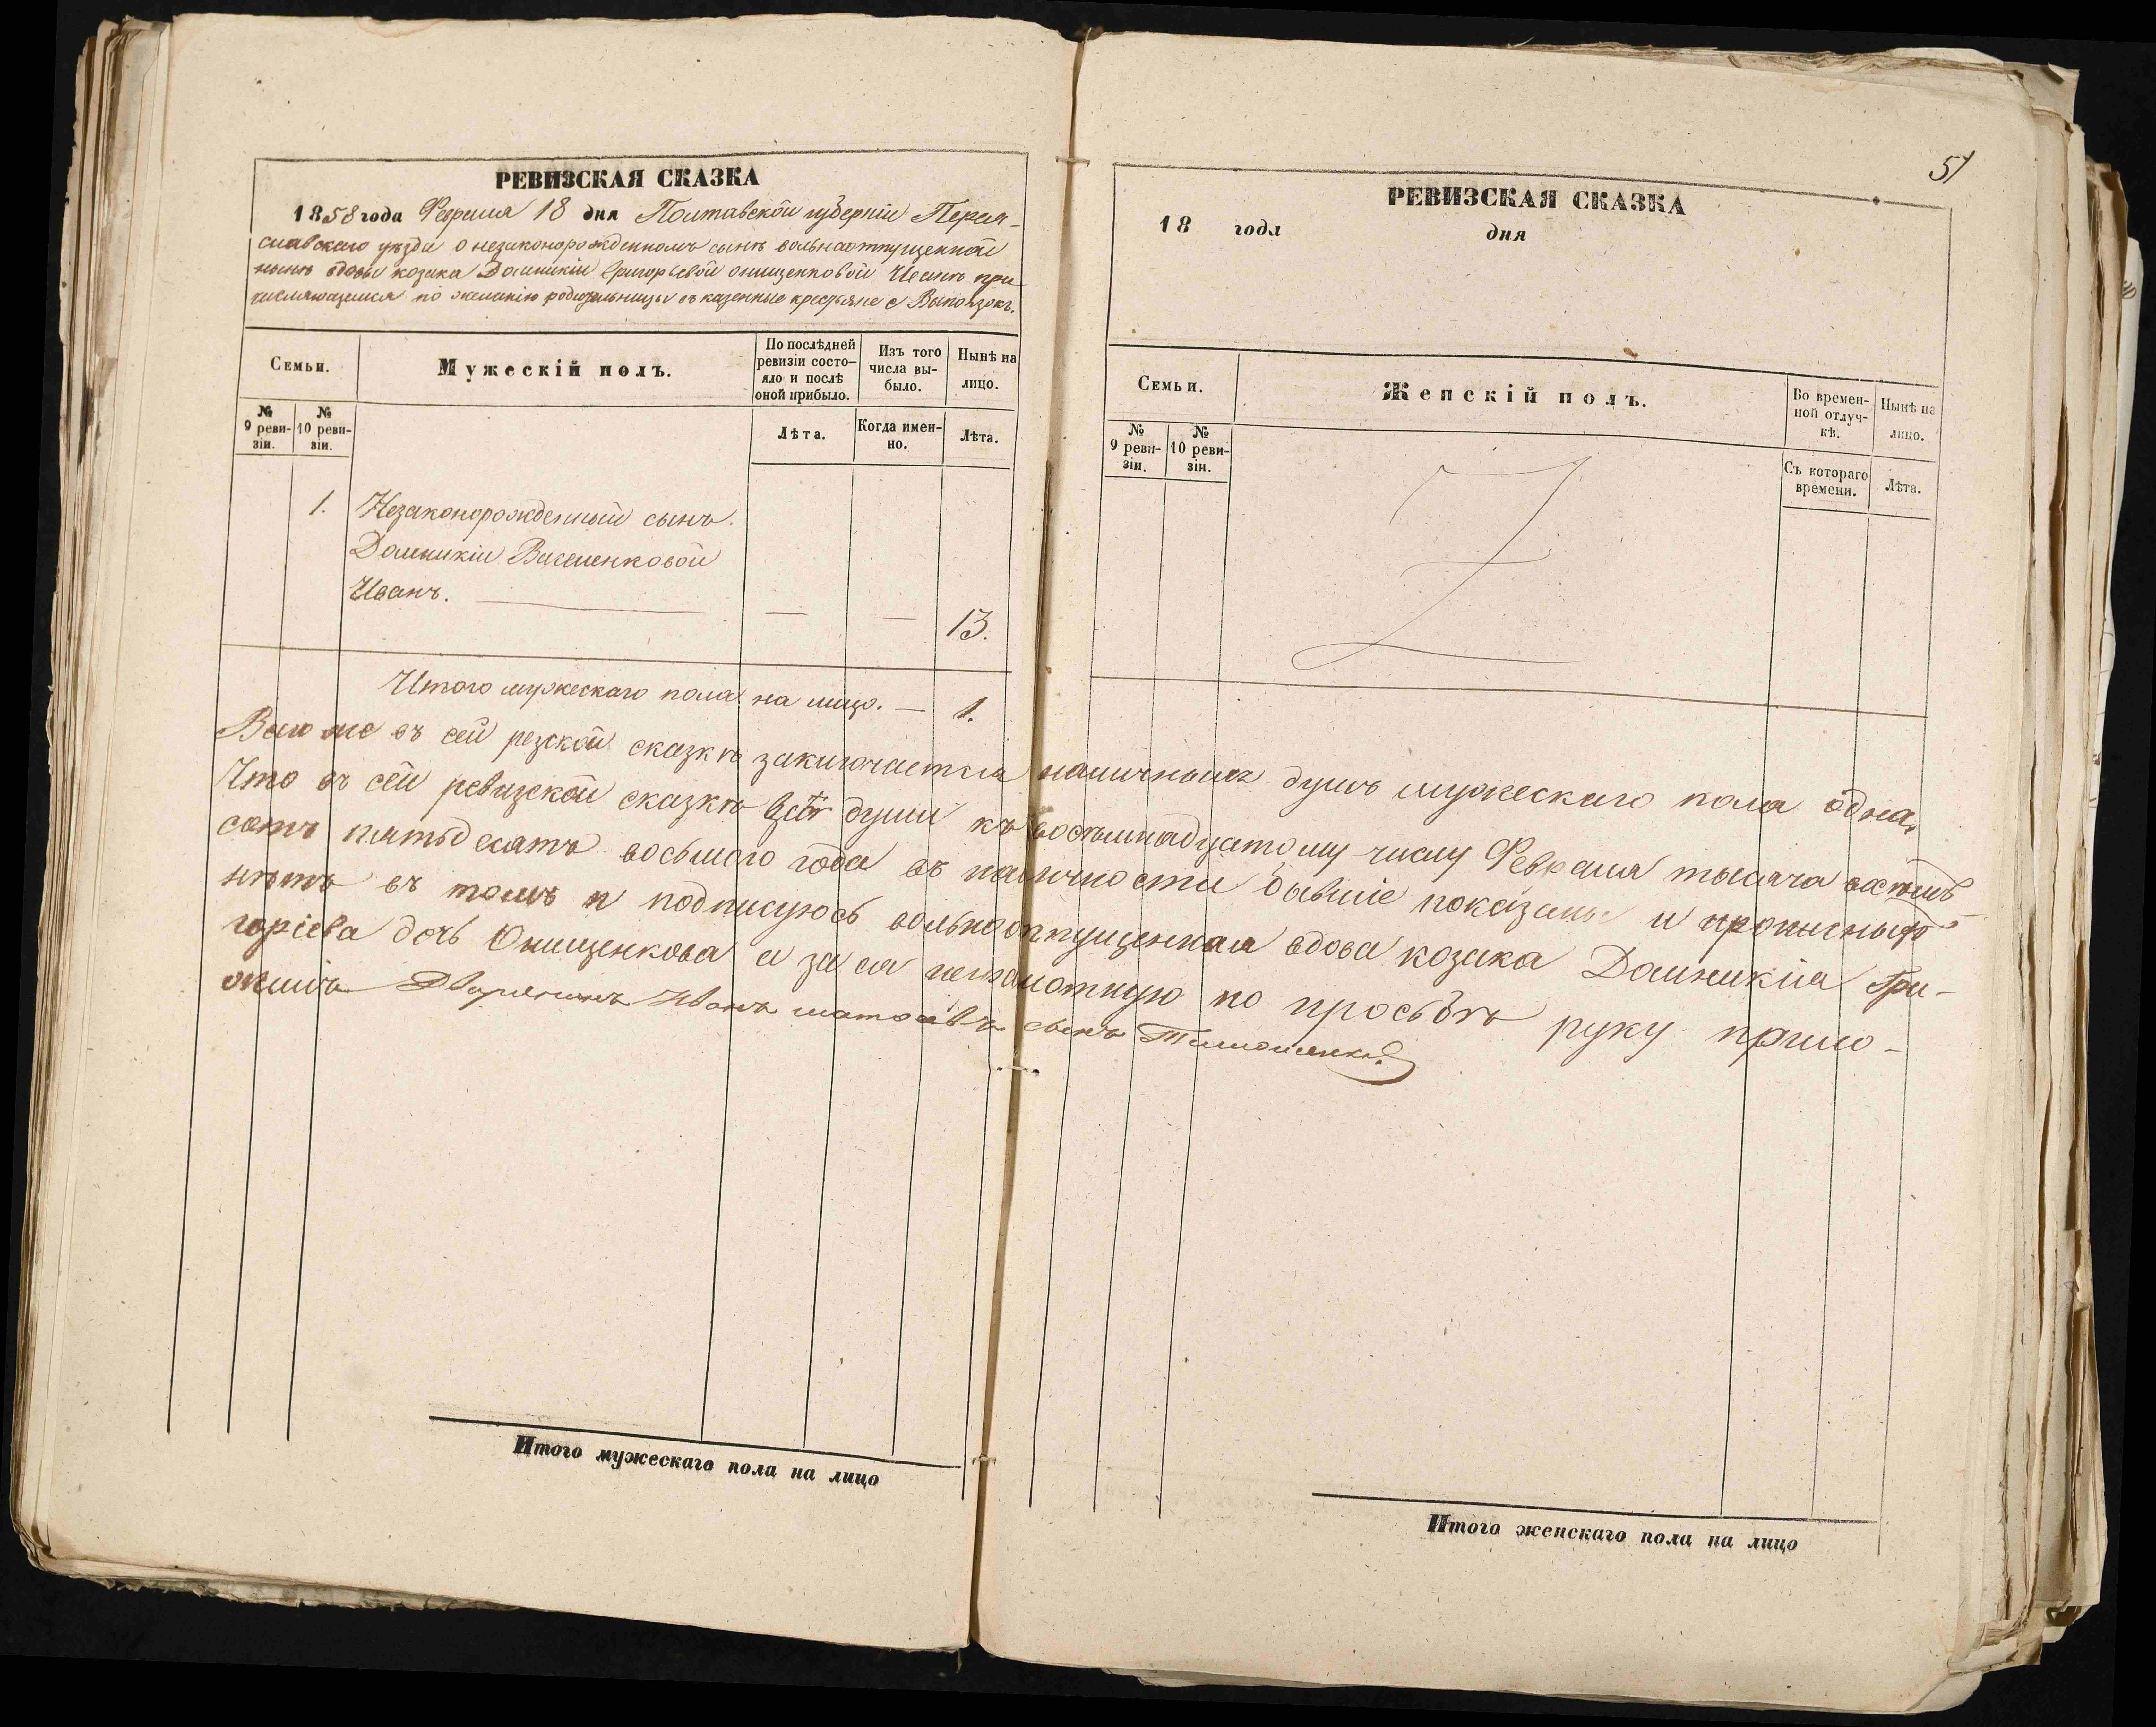 РЕВИЗСКАЯ СКАЗКА
1858 года Февраля 18 дня Полтавской губерніи Перея-
славскаго уезда о незаконорожденномъ сынѣ вольноотпущенной
нынѣ вдовы козака Домникіи Григорьевой Онищенковой Иванѣ при-
числяющемся по желанію родительницы въ казенные крестьяне с Выползокъ.
Семьи.
Мужескій полъ.
По послѣдней ревизіи состо-яло и послѣ оной прибыло.
Изъ того числа вы-было.
Нынѣ на лицо.
№ 9 реви-зіи.
№ 10 реви-зіи.
Лѣта.
Когда имен-но.
Лѣта.
1. Незаконорожденный сынъ
Домникіи
Иванъ. — — — 13.
Итого мужескаго пола на лицо. — 1.
51
РЕВИЗСКАЯ СКАЗКА
18 года дня
Семьи.
Женскій полъ.
Во времен-ной отлуч-кѣ.
Нынѣ на лицо.
№ 9 реви-зіи.
№ 10 реви-зіи.
Съ котораго времени.
Лѣта.
Всего же въ сей резской сказкѣ заключается наличныхъ душъ мужескаго пола одна.
Что въ сей ревизской сказкѣ всѣ души къ восемьнадцатому числу Февраля тысяча восемь
сотъ пятьдесятъ восьмого года въ наличности бывшіе показаны и прописныхъ
нѣтъ въ томъ и подписуюсь вольноотпущенная вдова козака Домникія Гри-
горіева дочь Онищенкова а за ея неграмотную по просьбѣ руку прило-
жилъ Дворянинъ Иванъ сынъ Тимошенко.
Итого мужескаго пола на лицо
Итого женскаго пола на лицо